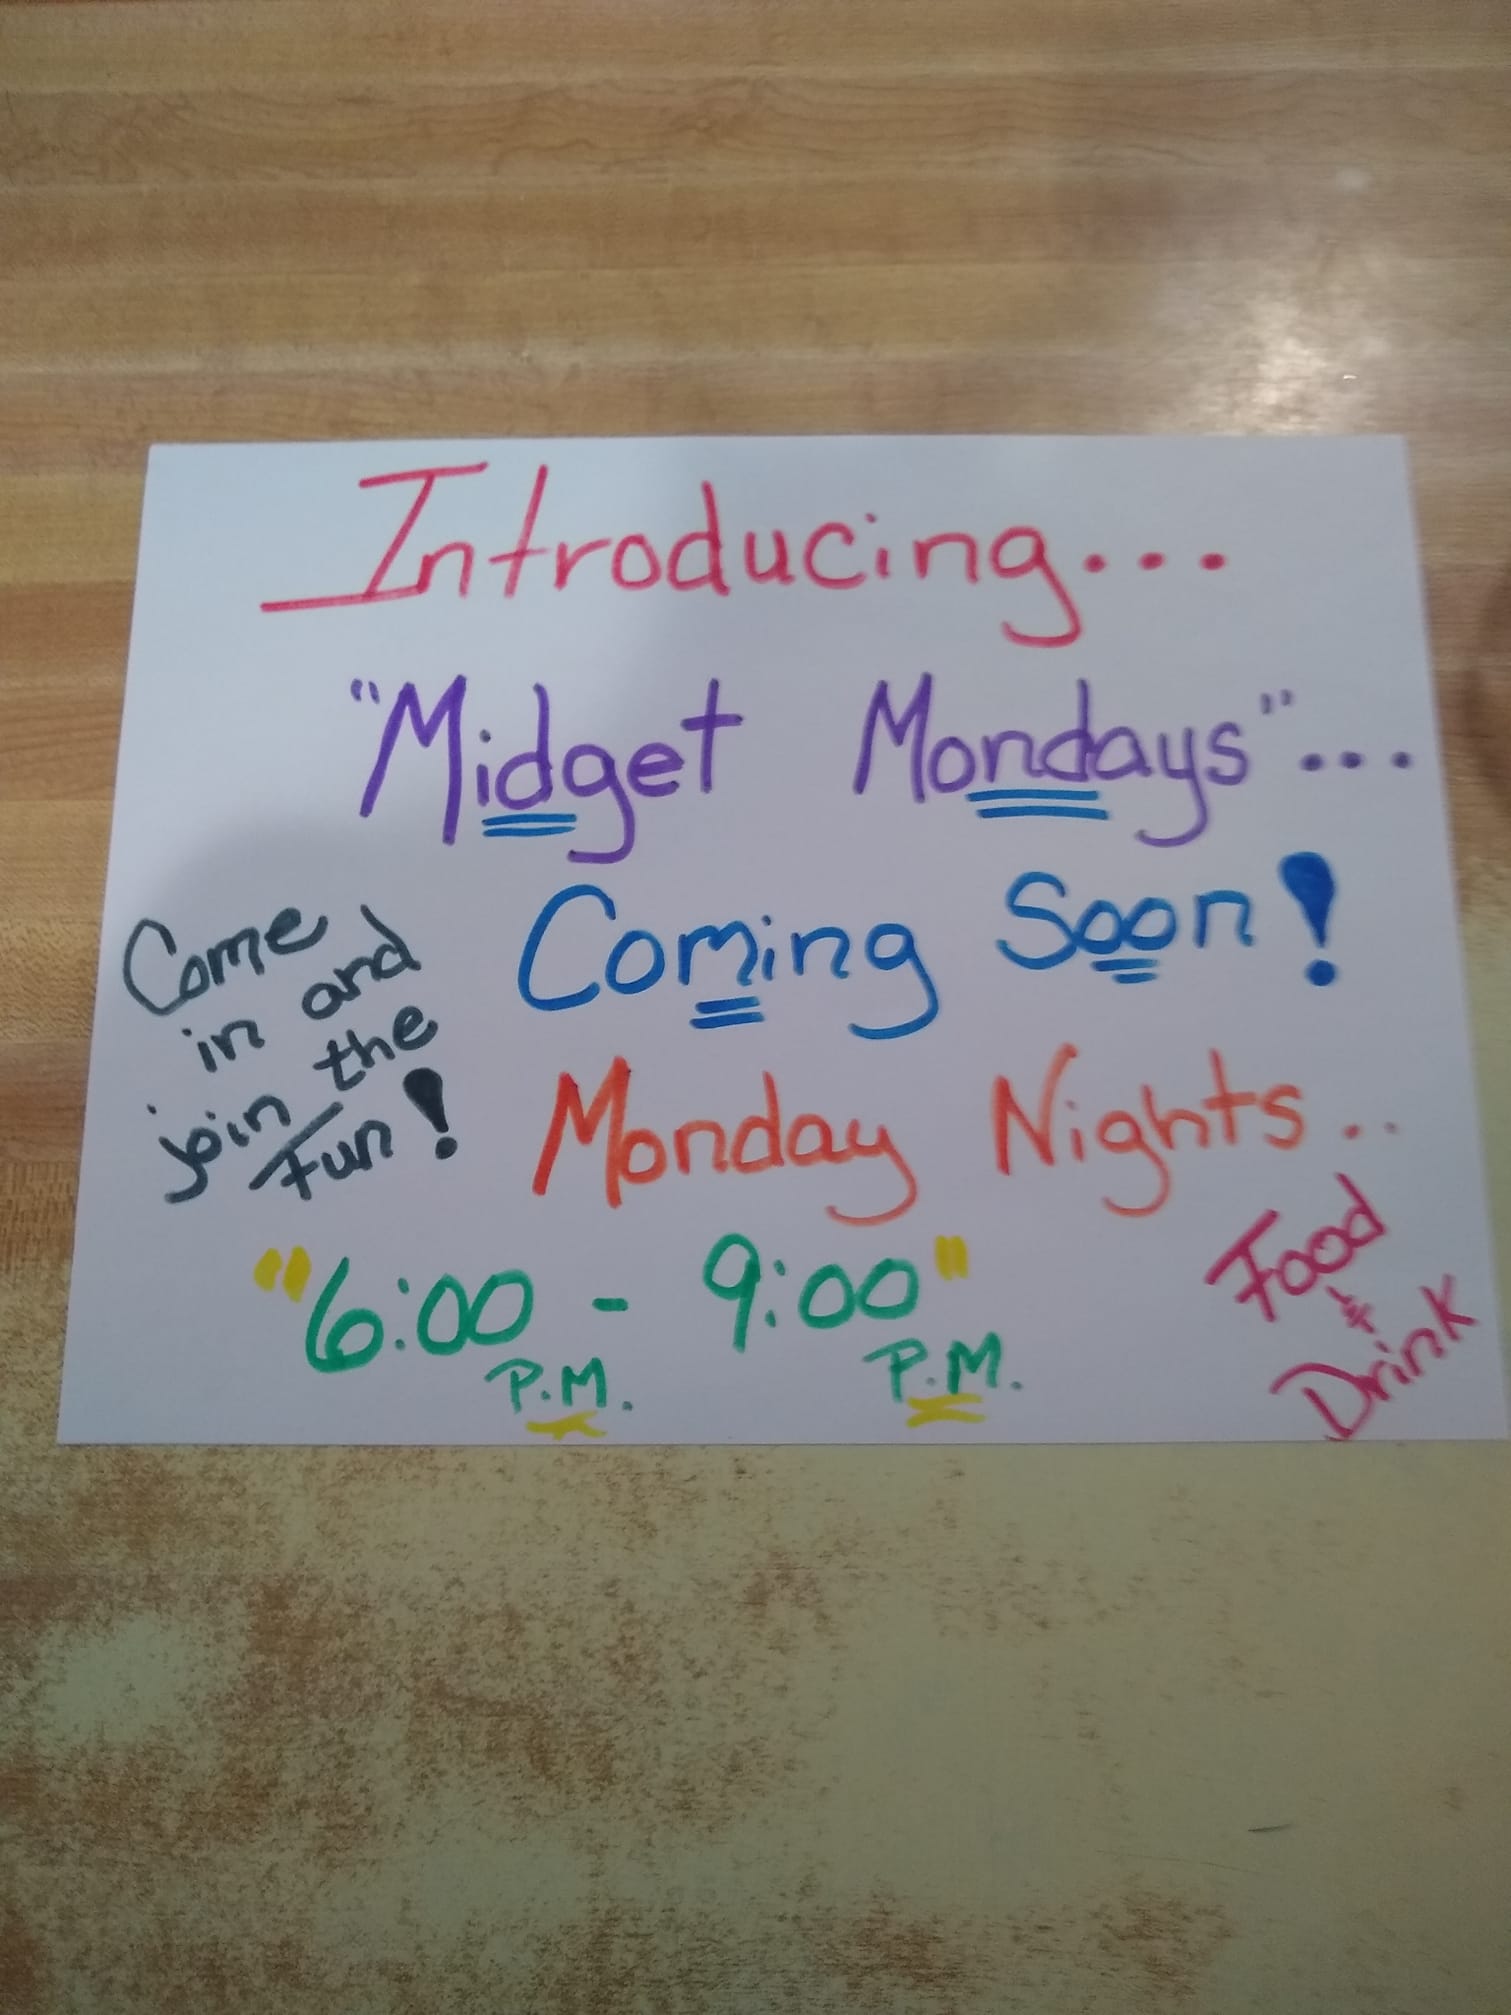 Introducing...
"Midget Mondays"...
Coming Soon!
Come
in and
join the
Fun!
Monday Nights..
"6:00 - 9:00"
P.M. P.M.
Food
&
Drink